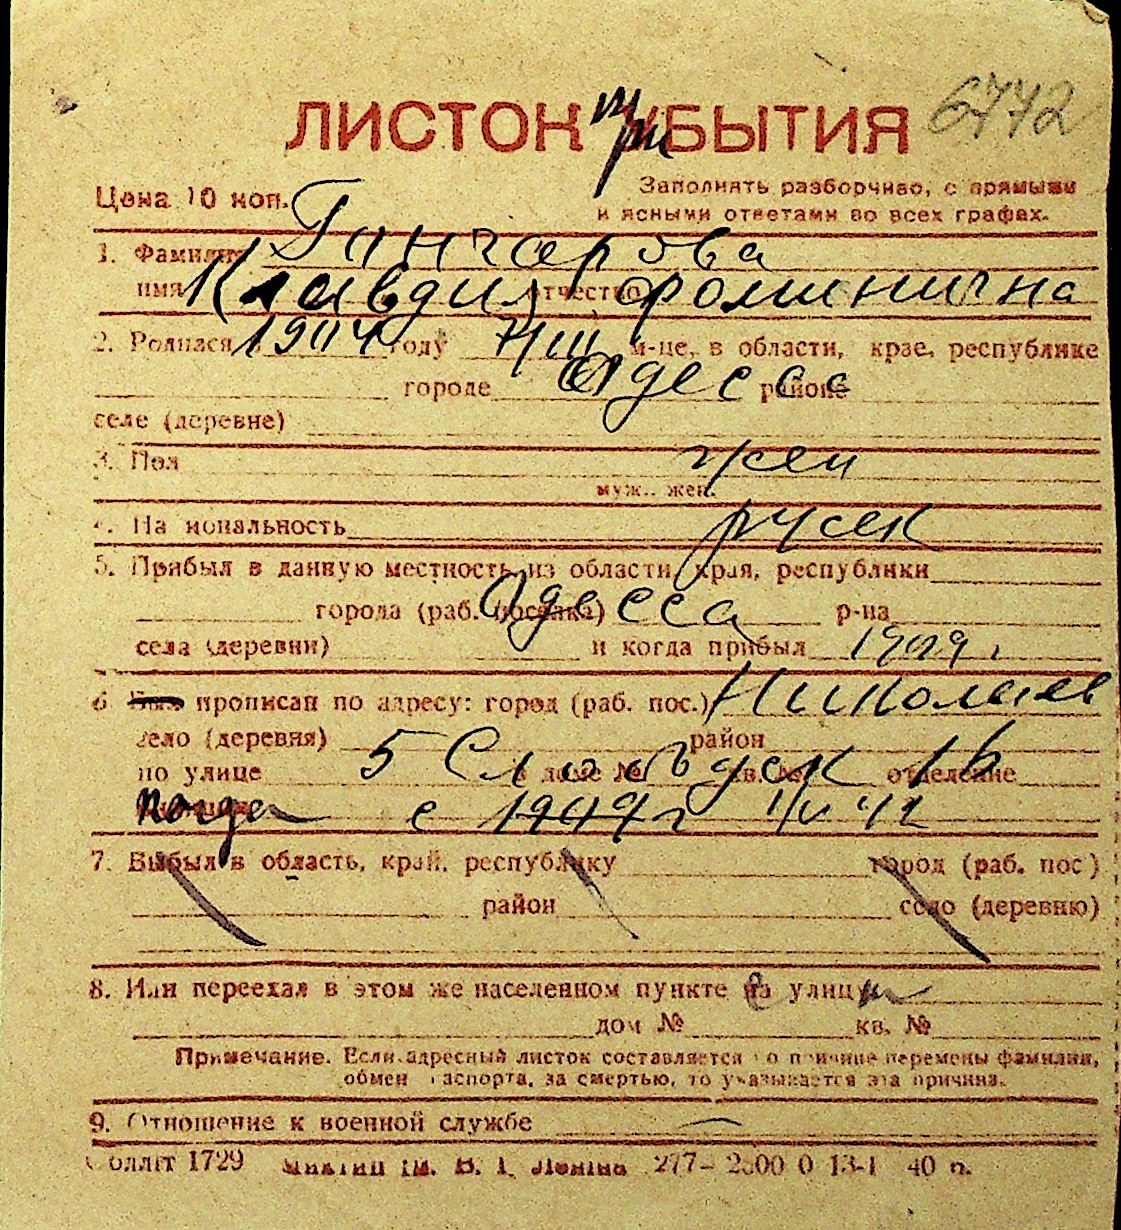 ЛИСТОК при БЫТИЯ 6772
Цена 10 коп. Заполнять разборчиво, с прямыми
и ясными ответами во всех графах.
1. Фамилия Ганчарова
имя Клавдия отчество Фоминична
2. Родился в 1904 году 7/III м-це, в области, крае, республике
городе Одесса районе
селе (деревне)
3. Пол жен
муж.. жен.
4. Национальность русск
5. Прибыл в данную местность из области, края, республики
города (раб. поселка) Одесса р-на
села (деревни) и когда прибыл 1909.
6 Был прописан по адресу: город (раб. пос.) Николаев
село (деревня) район
по улице 5 Слободск 16 в доме № кв. № отделение
когда с 1909 г 1/V 42
7. Выбыл в область, край, республику город (раб. пос)
район село (деревню)
8. Или переехал в этом же населенном пункте на улицу
дом № кв. №
Примечание. Если адресный листок составляется по причине перемены фамилии,
обмен паспорта, за смертью, то указывается эта причина.
9. Отношение к военной службе
Обллiт 1729 iм. В. I. Ленiна 277— 2500 0 13-1 40 п.